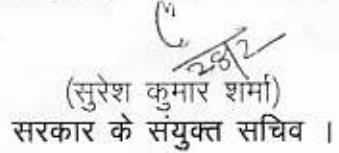 28/2
(सुरेश कुमार शर्मा)
सरकार के संयुक्त सचिव ।